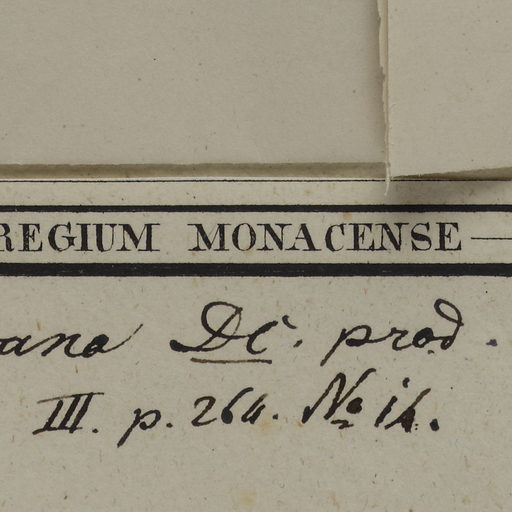 REGIUM MONACENSE
ana DC. prod.
III. p. 264. No 14.